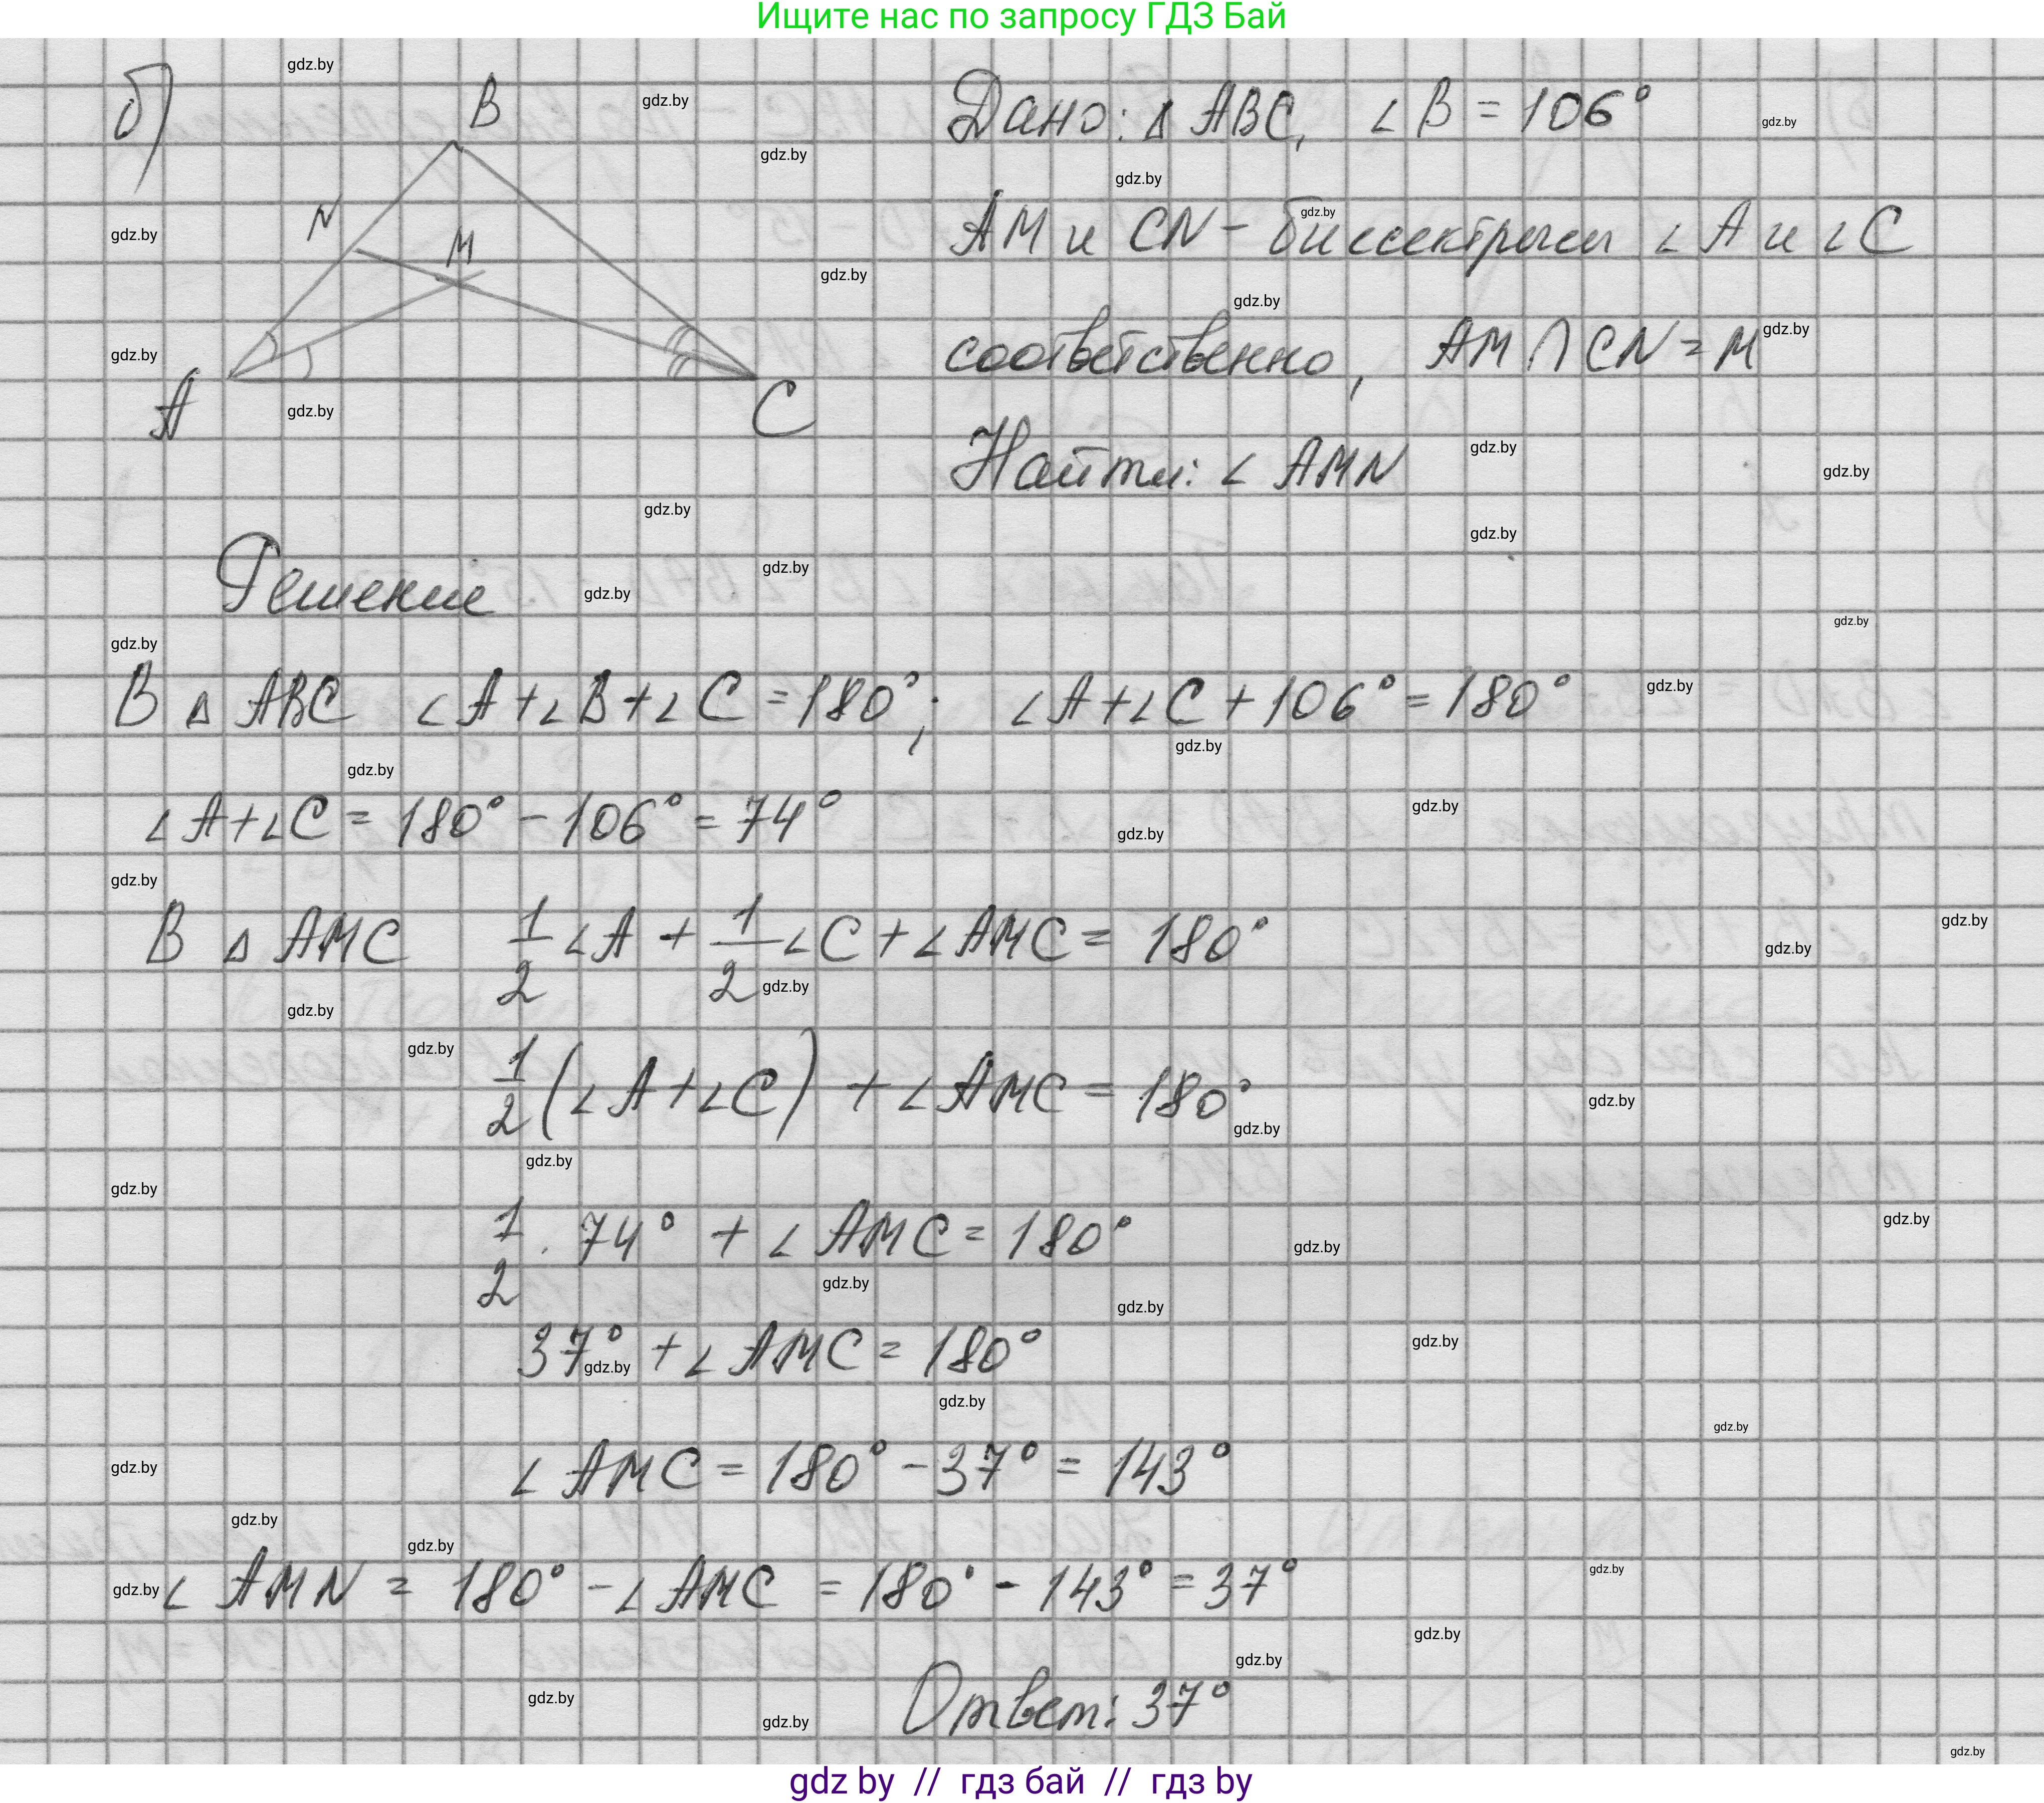 Ищите нас по запросу ГДЗ Бай
б)
B
N
M
A
C
Дано: Δ ABC, ∠B = 106°
AM и CN - биссектрисы ∠A и ∠C
соответственно, AM ∩ CN = M
Найти: ∠ AMN
Решение
В Δ ABC ∠A+∠B+∠C = 180°; ∠A+∠C + 106° = 180°
∠A+∠C = 180° - 106° = 74°
В Δ AMC 1/2 ∠A + 1/2 ∠C + ∠AMC = 180°
1/2 (∠A+∠C) + ∠AMC = 180°
1/2 · 74° + ∠ AMC = 180°
37° + ∠AMC = 180°
∠ AMC = 180° - 37° = 143°
∠ AMN = 180° - ∠AMC = 180° - 143° = 37°
Ответ: 37°
gdz by // гдз бай // гдз by